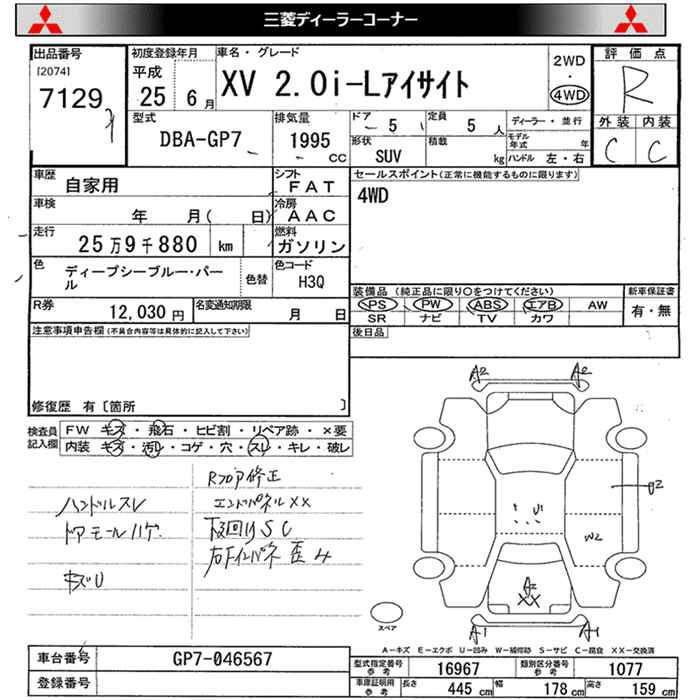 三菱ディーラーコーナー
出品番号
[2074]
7129
初度登録年月
平成
25 6月
車名・グレード
XV 2.0i-Lアイサイト
2WD
・
4WD
評価点
R
外装 内装
C C
型式
DBA-GP7
排気量
1995
CC
ドア
5
定員
5人
形状
SUV
積載
kg
ディーラー・並行
モデル年式 年
ハンドル 左・右
車歴
自家用
シフト
FAT
車検
年 月( 日)
冷房
AAC
走行
25万9千880 km
燃料
ガソリン
色
ディープシーブルー・パール
色替
色コード
H3Q
R券
12,030円
名変通知期限
月 日
セールスポイント(正常に機能するものに限ります)
4WD
装備品(純正品に限り○をつけてください)
PS PW ABS エアB AW
SR ナビ TV カワ
新車保証書
有・無
後日品
注意事項申告欄(不具合内容等は具体的に記入して下さい)
修復歴 有〔箇所 〕
検査員記入欄
FW キズ・飛石・ヒビ割・リペア跡・×要
内装 キズ・汚レ・コゲ・穴・スレ・キレ・破レ
ハンドルスレ
ドアモールハゲ
キズU
Rフロア修正
エンドパネルXX
下回りSC
右下インパネ歪み
A2 A2
U2
U
W2
A2
XX
A1 A1
スペア
A-キズ E-エクボ U-凹み W-補修跡 S-サビ C-腐食 XX-交換済
車台番号
GP7-046567
登録番号
型式指定番号
参考
16967
類別区分番号
参考
1077
車庫証明用
参考
長さ 445cm 幅 178cm 高さ 159cm